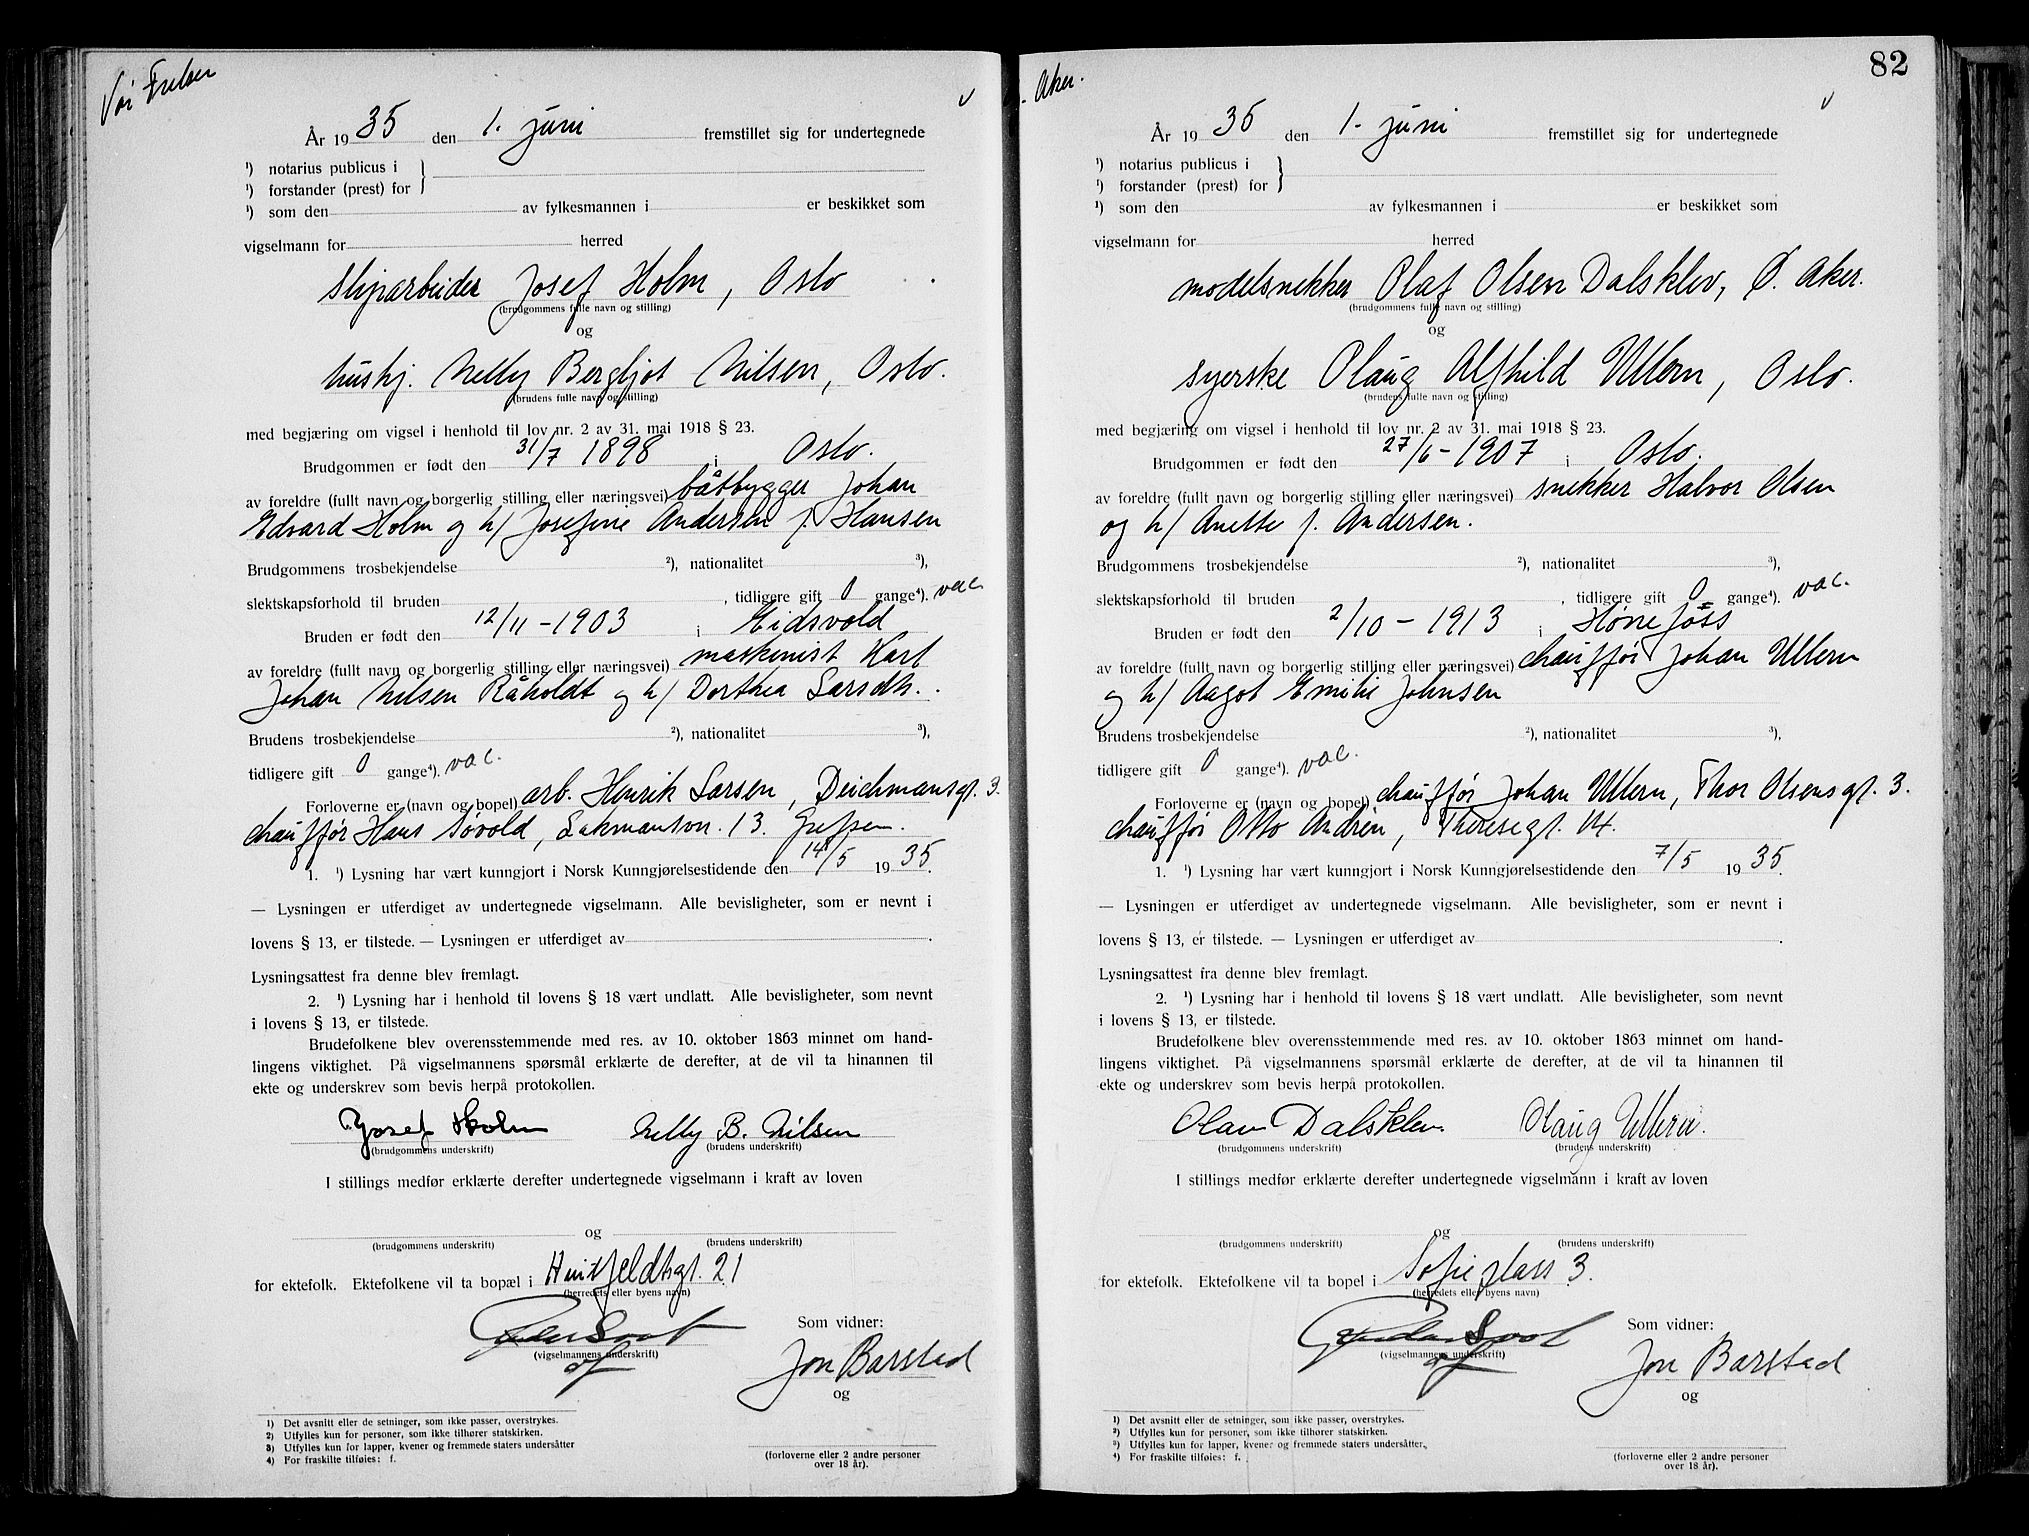 Vår Frelser
v
År 1935 den 1. juni fremstillet sig for undertegnede
¹) notarius publicus i
¹) forstander (prest) for
¹) som den av fylkesmannen i er beskikket som
vigselmann for herred
sliparbeider Josef Holm, Oslo
(brudgommens fulle navn og stilling)
og
hushj. Nelly Bergljot Nilsen, Oslo.
(brudens fulle navn og stilling)
med begjæring om vigsel i henhold til lov nr. 2 av 31. mai 1918 § 23.
Brudgommen er født den 31/7 1898 i Oslo.
av foreldre (fullt navn og borgerlig stilling eller næringsvei) båtbygger Johan
Edvard Holm og h/ Josefine Andersen f. Hansen
Brudgommens trosbekjendelse ²), nationalitet ³),
slektskapsforhold til bruden , tidligere gift 0 gange⁴). vac
Bruden er født den 12/11-1903 i Eidsvold
av foreldre (fullt navn og borgerlig stilling eller næringsvei) maskinist Karl
Johan Nilsen Råholdt og h/ Dorthea Larsdtr.
Brudens trosbekjendelse ²), nationalitet ³),
tidligere gift 0 gange⁴). vac.
Forloverne er (navn og bopel) arb. Henrik Larsen, Deichmansgt. 3.
chauffør Hans Søvold, Lakmansvn. 13. Grefsen.
1. ¹) Lysning har vært kunngjort i Norsk Kunngjørelsestidende den 14/5 1935.
— Lysningen er utferdiget av undertegnede vigselmann. Alle bevisligheter, som er nevnt i
lovens § 13, er tilstede. — Lysningen er utferdiget av .
Lysningsattest fra denne blev fremlagt.
2. ¹) Lysning har i henhold til lovens § 18 vært undlatt. Alle bevisligheter, som nevnt
i lovens § 13, er tilstede.
Brudefolkene blev overensstemmende med res. av 10. oktober 1863 minnet om hand-
lingens viktighet. På vigselmannens spørsmål erklærte de derefter, at de vil ta hinannen til
ekte og underskrev som bevis herpå protokollen.
Josef Holm Nelly B. Nilsen
(brudgommens underskrift) (brudens underskrift)
I stillings medfør erklærte derefter undertegnede vigselmann i kraft av loven
og
(brudgommens underskrift) (brudens underskrift)
for ektefolk. Ektefolkene vil ta bopæl i Huitfeldtsgt. 21
(herredets eller byens navn)
Som vidner:
(vigselmannens underskrift)
Jon Barstad
og
1) Det avsnitt eller de setninger, som ikke passer, overstrykes.
2) Utfylles kun for personer, som ikke tilhører statskirken.
3) Utfylles kun for lapper, kvener og fremmede staters undersåtter
4) For fraskilte tilføies: f.
(forloverne eller 2 andre personer
over 18 år).
Aker.
82
v
År 1935 den 1. juni fremstillet sig for undertegnede
¹) notarius publicus i
¹) forstander (prest) for
¹) som den av fylkesmannen i er beskikket som
vigselmann for herred
modelsnekker Olaf Olsen Dalsklev, Ø. Aker.
(brudgommens fulle navn og stilling)
og
syerske Olaug Alfhild Ullern, Oslo.
(brudens fulle navn og stilling)
med begjæring om vigsel i henhold til lov nr. 2 av 31. mai 1918 § 23.
Brudgommen er født den 27/6-1907 i Oslo.
av foreldre (fullt navn og borgerlig stilling eller næringsvei) snekker Halvor Olsen
og h/ Anette f. Andersen.
Brudgommens trosbekjendelse ²), nationalitet ³),
slektskapsforhold til bruden , tidligere gift 0 gange⁴). vac.
Bruden er født den 2/10-1913 i Hønefoss
av foreldre (fullt navn og borgerlig stilling eller næringsvei) chauffør Johan Ullern
og h/ Aagot Emilie Johnsen
Brudens trosbekjendelse ²), nationalitet ³),
tidligere gift 0 gange⁴). vac.
Forloverne er (navn og bopel) chauffør Johan Ullern, Thor Olsensgt. 3.
chauffør Otto Andrèn, Theresegt. 14.
1. ¹) Lysning har vært kunngjort i Norsk Kunngjørelsestidende den 7/5 1935.
— Lysningen er utferdiget av undertegnede vigselmann. Alle bevisligheter, som er nevnt i
lovens § 13, er tilstede. — Lysningen er utferdiget av .
Lysningsattest fra denne blev fremlagt.
2. ¹) Lysning har i henhold til lovens § 18 vært undlatt. Alle bevisligheter, som nevnt
i lovens § 13, er tilstede.
Brudefolkene blev overensstemmende med res. av 10. oktober 1863 minnet om hand-
lingens viktighet. På vigselmannens spørsmål erklærte de derefter, at de vil ta hinannen til
ekte og underskrev som bevis herpå protokollen.
Olav Dalsklev. Olaug Ullern.
(brudgommens underskrift) (brudens underskrift)
I stillings medfør erklærte derefter undertegnede vigselmann i kraft av loven
og
(brudgommens underskrift) (brudens underskrift)
for ektefolk. Ektefolkene vil ta bopel i Sofie plass 3.
(herredets eller byens navn)
Som vidner:
(vigselmannens underskrift)
Jon Barstad
og
¹) Det avsnitt eller de setninger, som ikke passer, overstrykes.
²) Utfylles kun for personer, som ikke tilhører statskirken.
³) Utfylles kun for lapper, kvener og fremmede staters undersåtter.
⁴) For fraskilte tilføies: f.
(forloverne eller 2 andre personer
over 18 år).